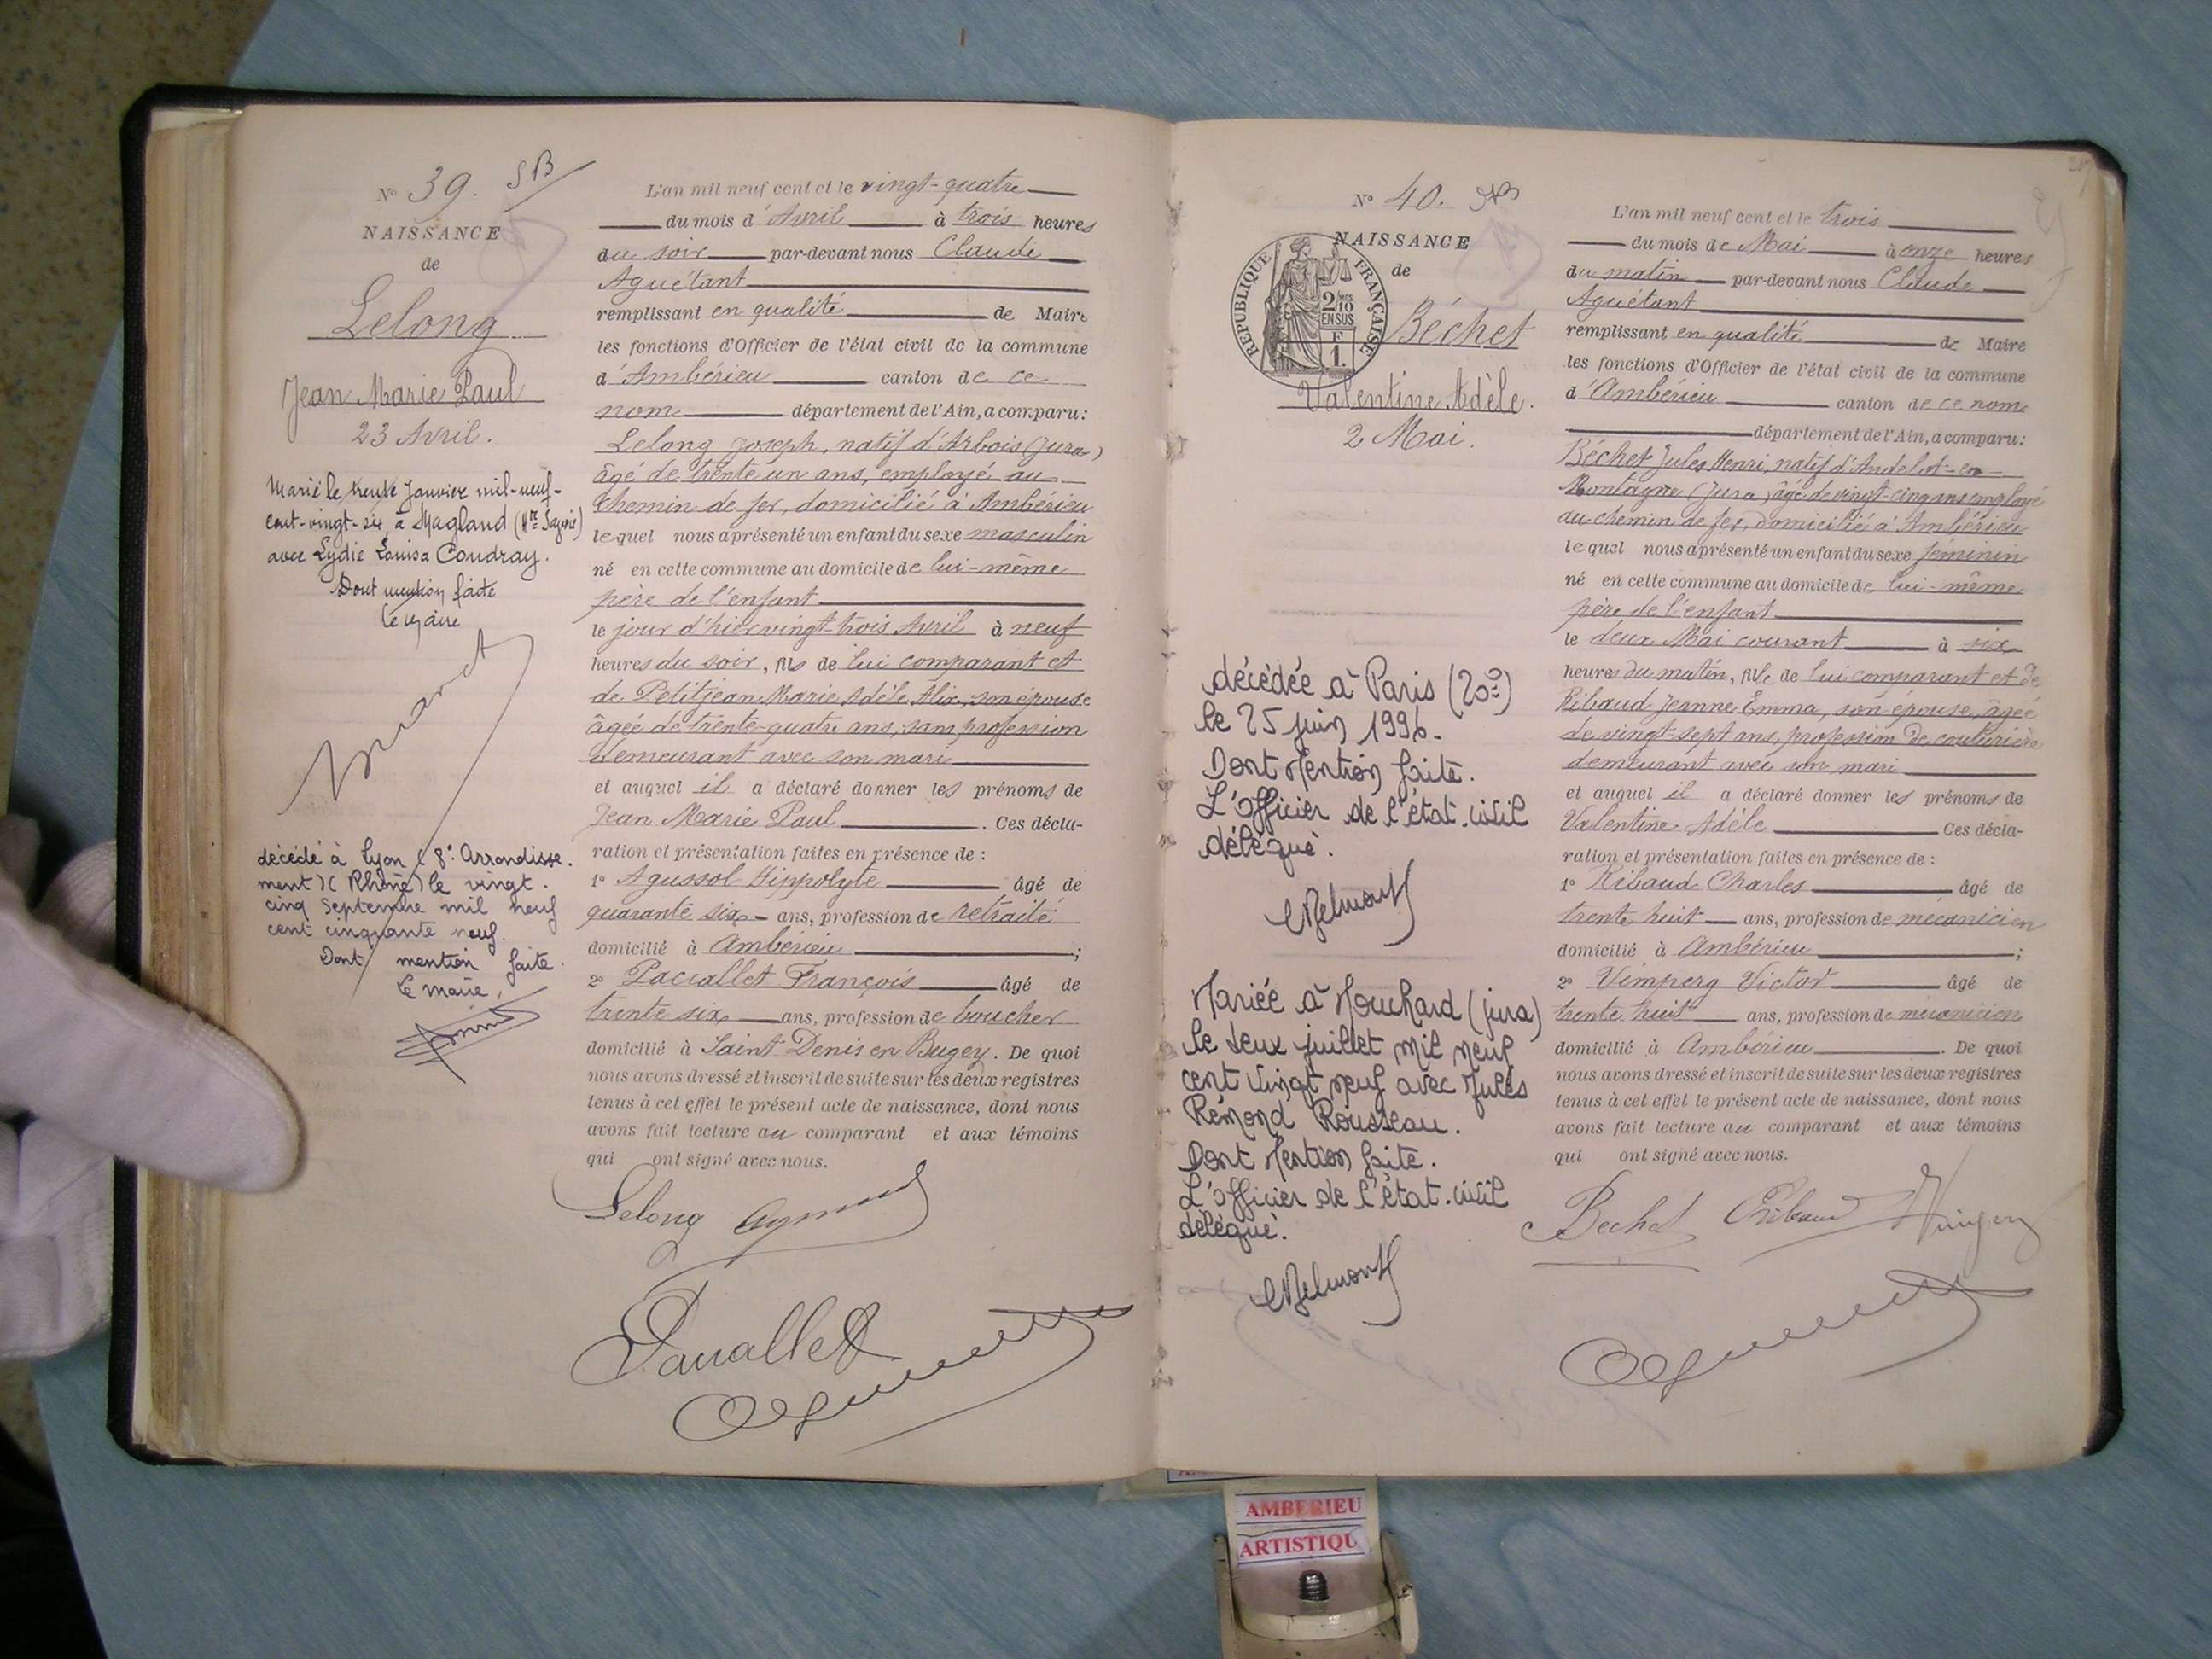 N° 39.
NAISSANCE
de
Lelong
Jean Marie Paul
23 Avril.
Marié le trente Janvier mil-neuf-
cent-vingt-six à Magland (Hte Savoie)
avec Lydie Louisa Coudray.
Dont mention faite
Le maire
décédé à Lyon (8e Arrondisse.
ment) (Rhône) le vingt.
cinq Septembre mil neuf
cent cinquante neuf.
Dont mention faite.
Le maire,
L'an mil neuf cent et le vingt-quatre
du mois d'Avril à trois heures
du soir par-devant nous Claude
Aguétant
remplissant en qualité de Maire
les fonctions d'Officier de l'état civil de la commune
d'Ambérieu canton de ce
nom département de l'Ain, a comparu:
Lelong Joseph, natif d'Arbois (Jura)
âgé de trente un ans, employé au
Chemin de fer, domicilié à Ambérieu
lequel nous a présenté un enfant du sexe masculin
né en cette commune au domicile de lui-même
père de l'enfant
le jour d'hier vingt-trois Avril à neuf
heures du soir, fils de lui comparant et
de Petitjean Marie Adèle Alix, son épouse
âgée de trente-quatre ans, sans profession
demeurant avec son mari
et auquel il a déclaré donner les prénoms de
Jean Marie Paul. Ces décla-
ration et présentation faites en présence de :
1° Agussol Hippolyte âgé de
quarante six ans, profession de retraité
domicilié à Ambérieu ;
2° Paccallet François âgé de
trente six ans, profession de boucher
domicilié à Saint Denis en Bugey. De quoi
nous avons dressé et inscrit de suite sur les deux registres
tenus à cet effet le présent acte de naissance, dont nous
avons fait lecture au comparant et aux témoins
qui ont signé avec nous.
Lelong
Paccallet
N° 40.
NAISSANCE
de
RÉPUBLIQUE FRANÇAISE
2/10
EN SUS
F
1.
Béchet
Valentine Adèle.
2 Mai.
décédée à Paris (20e)
le 25 juin 1996.
Dont Mention faite.
L'Officier de l'état.civil
délégué.
Mariée à Mouchard (jura)
le deux juillet mil neuf
cent vingt neuf avec Jules
Rémond Rousseau.
Dont Mention faite.
L'Officier de l'état.civil
délégué.
L'an mil neuf cent et le trois
du mois de Mai à onze heures
du matin par-devant nous Claude
Aguétant
remplissant en qualité de Maire
les fonctions d'Officier de l'état civil de la commune
d'Ambérieu canton de ce nom
département de l'Ain, a comparu:
Béchet Jules Henri, natif d'Andelot-en-
Montagne (Jura) âgé de vingt-cinq ans employé
au chemin de fer, domicilié à Ambérieu
lequel nous a présenté un enfant du sexe féminin
né en cette commune au domicile de lui-même
père de l'enfant
le deux Mai courant à six
heures du matin, fille de lui comparant et de
Ribaud Jeanne Emma, son épouse, âgée
de vingt-sept ans, profession de couturière
demeurant avec son mari
et auquel il a déclaré donner les prénoms de
Valentine Adèle Ces décla-
ration et présentation faites en présence de :
1° Ribaud Charles âgé de
trente huit ans, profession de mécanicien
domicilié à Ambérieu ;
2° Vimperg Victor âgé de
trente huit ans, profession de mécanicien
domicilié à Ambérieu. De quoi
nous avons dressé et inscrit de suite sur les deux registres
tenus à cet effet le présent acte de naissance, dont nous
avons fait lecture au comparant et aux témoins
qui ont signé avec nous.
Bechet Ribaud
AMBERIEU
ARTISTIQU